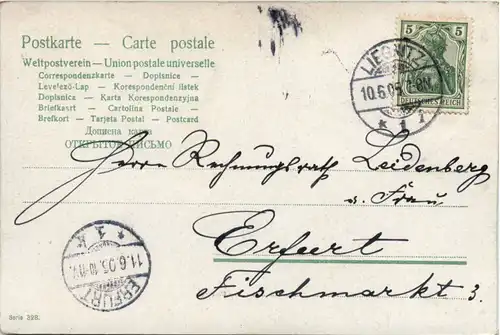 Postkarte — Carte postale
Weltpostverein — Union postale universelle
Correspondenzkarte — Dopisnice
Levelező-Lap. — Korespondenční listek
Dopisnica — Karta Korespondencyjna
Briefkaart — Cartolina Postale —
Brefkort — Tarjeta Postal — Postcard
Дописна карта
ОТКРЫТОЕ ПИСЬМО
5 5
DEUTSCHES REICH
LIEGNITZ
10.6.05
* 1 1
Herrn Rechnungsrath Leidenberg
u. Frau
Erfurt
Fischmarkt 3.
* 1 k
11.6.05. 10-11V.
ERFURT
Serie 328.